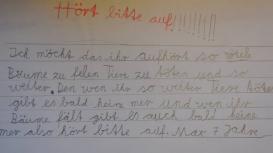 Hört bitte auf!!!!!!!!
Ich möcht das ihr aufhört so viele
Bäume zu felen Tiere zu töten und so
weiter. Den wen ihr so weiter Tiere tötet
gibt es bald keine mer und wen ihr
Bäume fält gibt es auch bald keine
mer also hört bitte auf. Max 7 Jahre